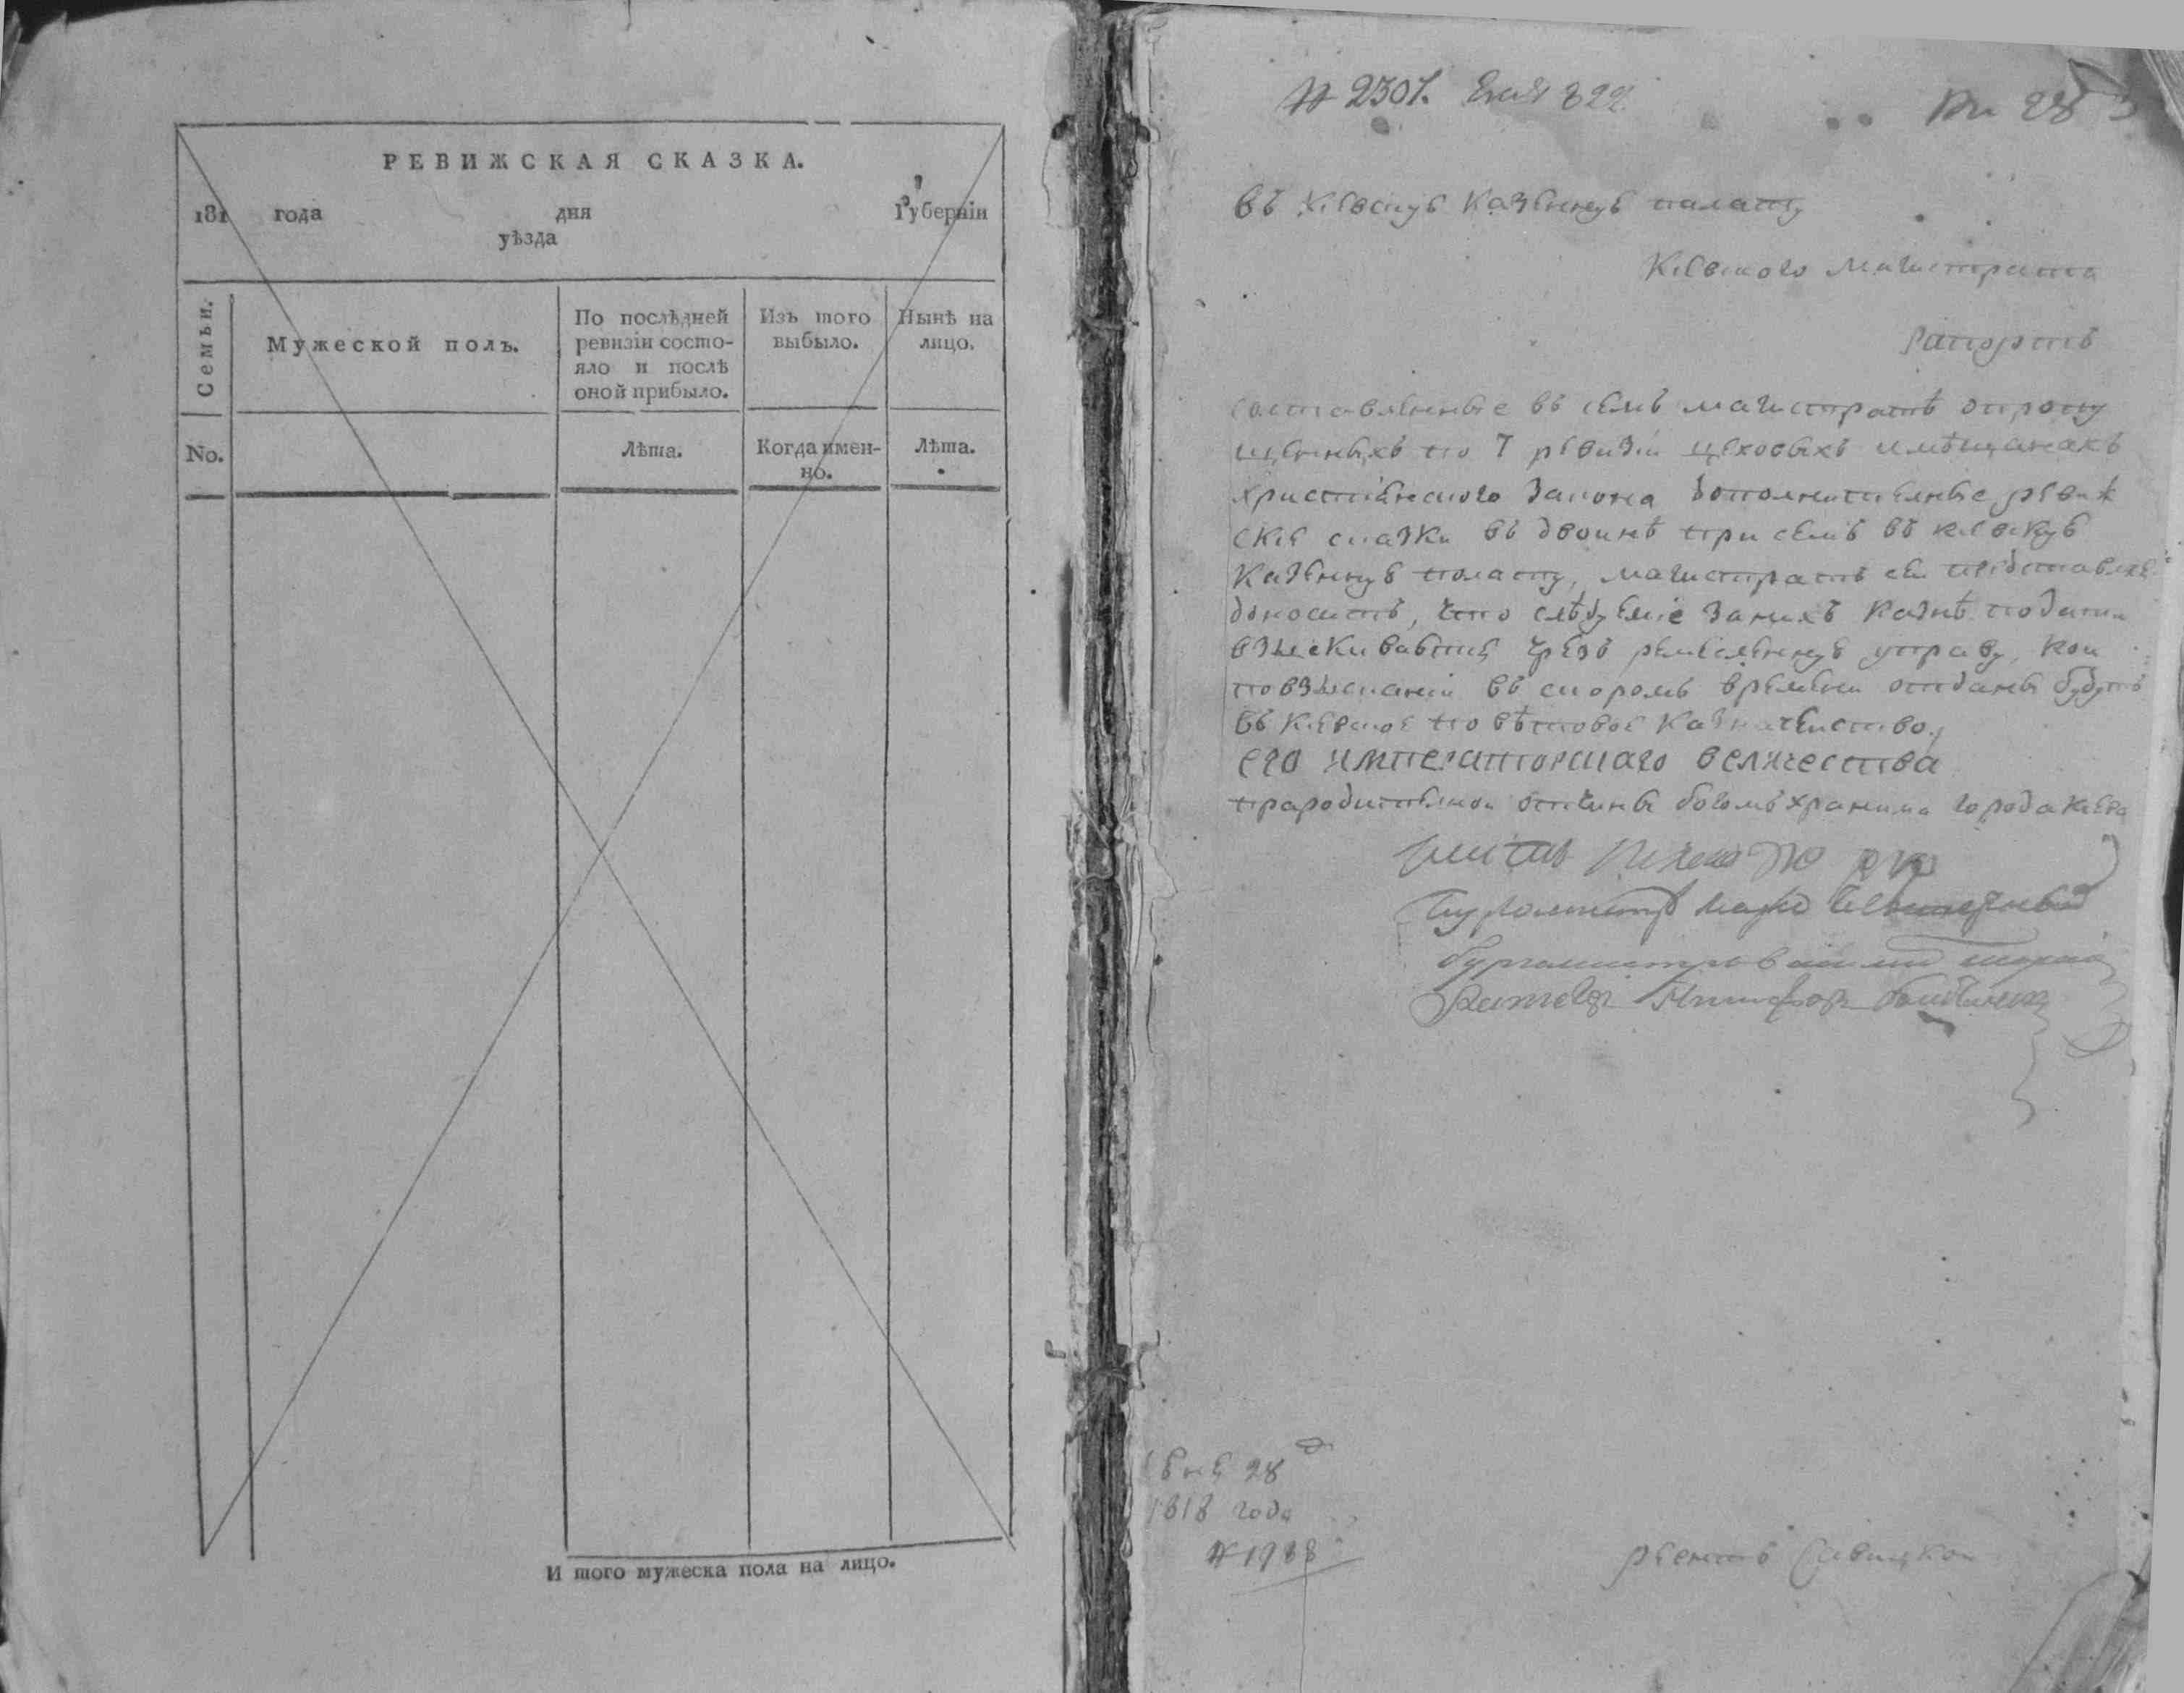 РЕВИЖСКАЯ СКАЗКА.
181 года дня Губерніи
уѣзда
Семьи.
Мужеской полъ.
По послѣдней
ревизіи состо-
яло и послѣ
оной прибыло.
Изъ того
выбыло.
Нынѣ на
лицо.
No.
Лѣта.
Когда имен-
но.
Лѣта.
И того мужеска пола на лицо.
№ 2307.
въ Кіевскую Казенную палату
Кіевского Магистрата
Рапортъ
Составленные въ семъ магистратѣ о пропу
щенныхъ по 7 ревизіи цеховыхъ и мѣщанахъ
христіянского Закона дополнителные ревиж
скіе сказки въ двоинѣ при семъ въ кіевскую
Казенную полату, магистратъ сеи представляя
доноситъ, что слѣдуемые за нихъ Казнѣ подати
взыскиваются чрезъ ремесленную управу, кои
по взысканіи въ скоромъ времени отданы будутъ
въ Кіевское повѣтовое Казначеиство,
его императорскаго величества
прародителнои отчины богомъ хранима города Кіева
Бургомистръ
бургомистръ
Ратсгеръ
28
1818 года
№ 1988